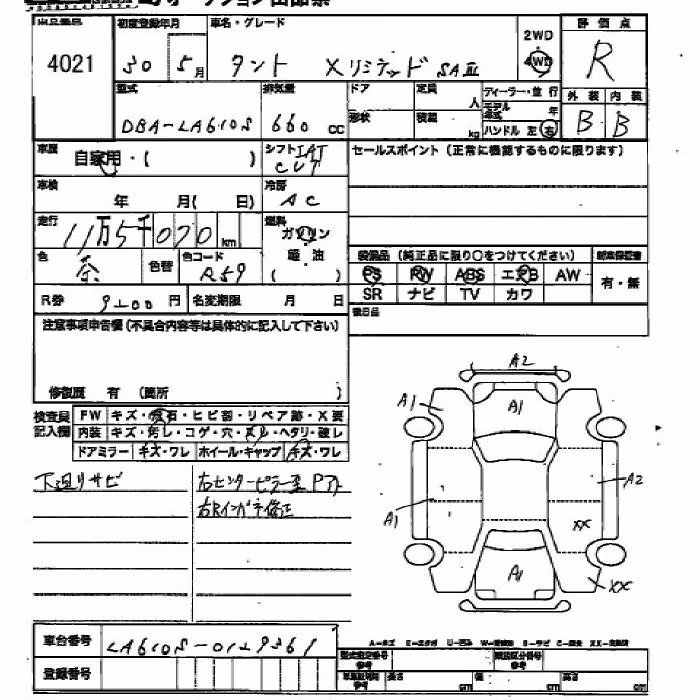 4021
初度登録年月
車名・グレード
評価点
30 5月
タント Xリミテッド SAⅢ
2WD
4WD
R
型式
排気量
ドア
定員 人
ディーラー・並行
モデル年式 年
外装 内装
DBA-LA610S
660 cc
形状
積載 kg
ハンドル 左 右
B B
車歴
自家用・( )
シフト IAT
CVT
セールスポイント (正常に機能するものに限ります)
車検
年 月( 日)
冷房
AC
走行
11万5千070km
燃料
ガソリン
軽・油
( )
色
茶
色替
色コード
R59
装備品 (純正品に限り○をつけてください)
新車保証書
PS PW ABS エアB AW
有・無
SR ナビ TV カワ
R券 円
名変期限 月 日
後日品
注意事項申告欄 (不具合内容等は具体的に記入して下さい)
修復歴 有 (箇所 )
検査員
記入欄
FW キズ・飛石・ヒビ割・リペア跡・X要
内装 キズ・汚レ・コゲ・穴・スレ・ヘタリ・破レ
ドアミラー キズ・ワレ ホイール・キャップ キズ・ワレ
下廻リサビ
右センターピラー
右Rインパネ修正
A2
A1
A1
A1
A2
XX
A1
XX
車台番号
登録番号
型式指定番号
参考
類別区分番号
参考
長さ cm
幅 cm
高さ cm